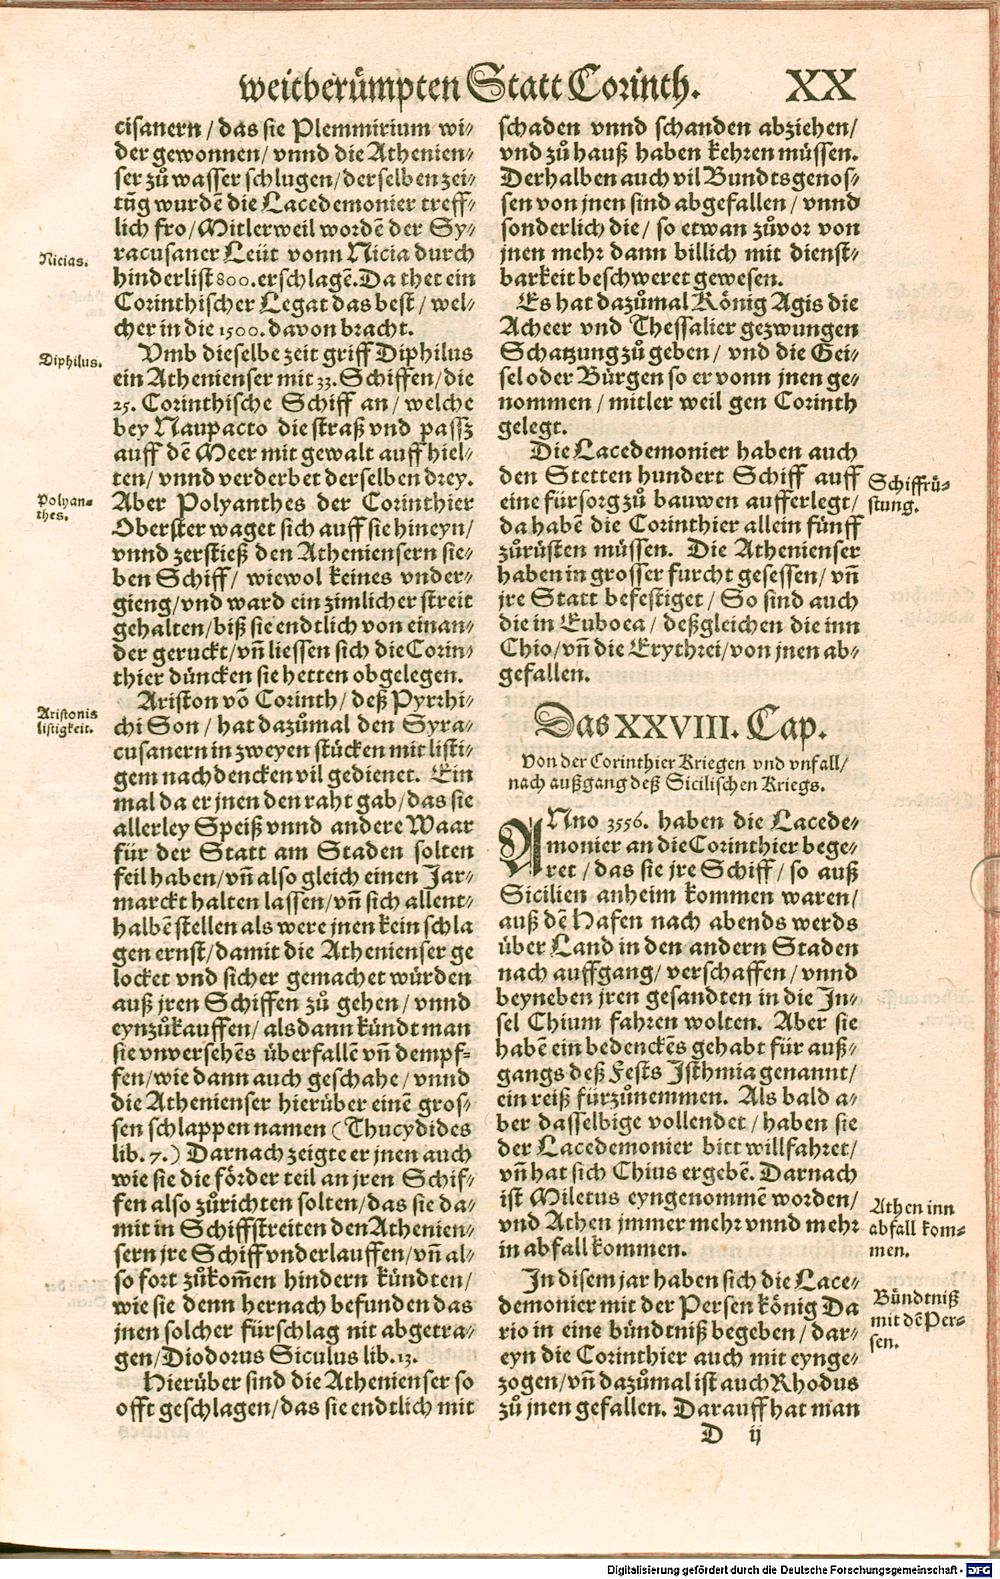 weitberümpten Statt Corinth. XX
cisanern / das sie Plemmirium wi⸗
der gewonnen / vnnd die Athenien⸗
ser zů wasser schlugen / derselben zei⸗
tũg wurdẽ die Lacedemonier treff⸗
lich fro / Mitlerweil wordẽ der Sy⸗
racusaner Leüt vonn Nicia durch
hinderlist 800. erschlagẽ. Da thet ein
Corinthischer Legat das best / wel⸗
cher in die 1500. davon bracht.
Vmb dieselbe zeit griff Diphilus
ein Athenienser mit 33. Schiffen / die
25. Corinthische Schiff an / welche
bey Naupacto die straß vnd passz
auff dẽ Meer mit gewalt auff hiel⸗
ten / vnnd verderbet derselben drey.
Aber Polyanthes der Corinthier
Oberster waget sich auff sie hineyn /
vnnd zerstieß den Atheniensern sie⸗
ben Schiff / wiewol keines vnder⸗
gieng / vnd ward ein zimlicher streit
gehalten / biß sie endtlich von einan⸗
der geruckt / vñ liessen sich die Corin⸗
thier düncken sie hetten obgelegen.
Ariston võ Corinth / deß Pyrrhi⸗
chi Son / hat dazůmal den Syra⸗
cusanern in zweyen stücken mit listi⸗
gem nachdencken vil gedienet. Ein
mal da er jnen den raht gab / das sie
allerley Speiß vnnd andere Waar
für der Statt am Staden solten
feil haben / vñ also gleich einen Jar⸗
marckt halten lassen / vñ sich allent⸗
halbẽ stellen als were jnen kein schla
gen ernst / damit die Athenienser ge
locket vnd sicher gemachet würden
auß jren Schiffen zů gehen / vnnd
eynzůkauffen / als dann kündt man
sie vnversehẽs überfallẽ vñ dempf⸗
fen / wie dann auch geschahe / vnnd
die Athenienser hierüber einẽ gros⸗
sen schlappen namen ( Thucydides
lib. 7. ) Darnach zeigte er jnen auch
wie sie die förder teil an jren Schif⸗
fen also zůrichten solten / das sie da⸗
mit in Schiffstreiten den Athenien⸗
sern jre Schiff vnderlauffen / vñ al⸗
so fort zůkom̃en hindern kündten /
wie sie denn hernach befunden das
jnen solcher fürschlag nit abgetra⸗
gen / Diodorus Siculus lib. 13.
Hierüber sind die Athenienser so
offt geschlagen / das sie endtlich mit
Nicias.
Diphilus.
Polyan⸗
thes.
Aristonis
listigkeit.
schaden vnnd schanden abziehen /
vnd zů hauß haben kehren müssen.
Derhalben auch vil Bundtsgenos⸗
sen von jnen sind abgefallen / vnnd
sonderlich die / so etwan zůvor von
jnen mehr dann billich mit dienst⸗
barkeit beschweret gewesen.
Es hat dazůmal König Agis die
Acheer vnd Thessalier gezwungen
Schatzung zů geben / vnd die Gei⸗
sel oder Bürgen so er vonn jnen ge⸗
nommen / mitler weil gen Corinth
gelegt.
Die Lacedemonier haben auch
den Stetten hundert Schiff auff
eine fürsorg zů bauwen aufferlegt /
da habẽ die Corinthier allein fünff
zůrüsten müssen. Die Athenienser
haben in grosser furcht gesessen / vñ
jre Statt befestiget / So sind auch
die in Euboea / deßgleichen die inn
Chio / vñ die Erythrei / von jnen ab⸗
gefallen.
Schiffrü⸗
stung.
Das XXVIII. Cap.
Von der Corinthier Kriegen vnd vnfall /
nach außgang deß Sicilischen Kriegs.
ANno 3556. haben die Lacede⸗
monier an die Corinthier bege⸗
ret / das sie jre Schiff / so auß
Sicilien anheim kommen waren /
auß dẽ Hafen nach abends werds
über Land in den andern Staden
nach auffgang / verschaffen / vnnd
beyneben jren gesandten in die In⸗
sel Chium fahren wolten. Aber sie
habẽ ein bedenckẽs gehabt für auß⸗
gangs deß Fests Isthmia genannt /
ein reiß fürzůnemmen. Als bald a⸗
ber dasselbige vollendet / haben sie
der Lacedemonier bitt willfahret /
vñ hat sich Chius ergebẽ. Darnach
ist Miletus eyngenommẽ worden /
vnd Athen jmmer mehr vnnd mehr
in abfall kommen.
In disem jar haben sich die Lace⸗
demonier mit der Persen könig Da
rio in eine bündtniß begeben / dar⸗
eyn die Corinthier auch mit eynge⸗
zogen / vñ dazůmal ist auch Rhodus
zů jnen gefallen. Darauff hat man
Athen inn
abfall kom⸗
men.
Bündtniß
mit dẽ Per⸗
sen.
D ij
Digitalisierung gefördert durch die Deutsche Forschungsgemeinschaft - DFG